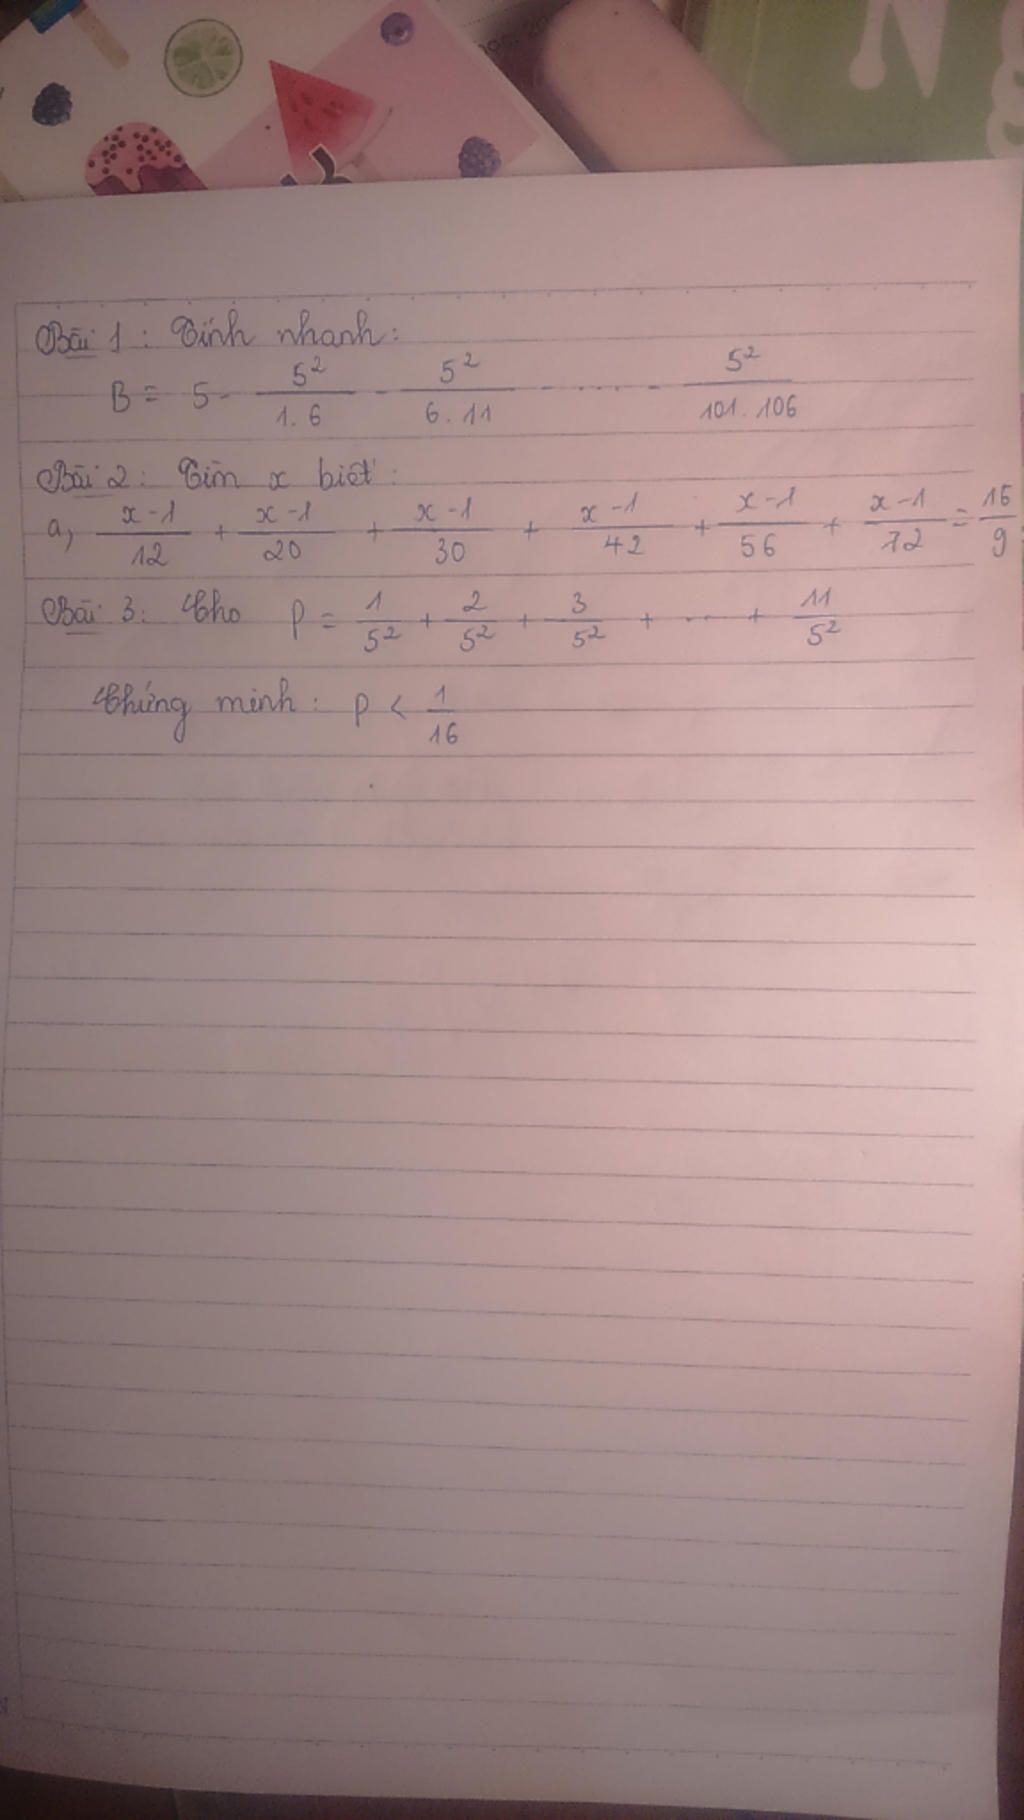 Bài 1: Tính nhanh:
B = 5 - 5²/1.6 - 5²/6.11 - ..... - 5²/101.106
Bài 2: Tìm x biết:
a, x-1/12 + x-1/20 + x-1/30 + x-1/42 + x-1/56 + x-1/72 = 16/9
Bài 3: Cho P = 1/5² + 2/5² + 3/5² + .... + 11/5²
Chứng minh: P < 1/16